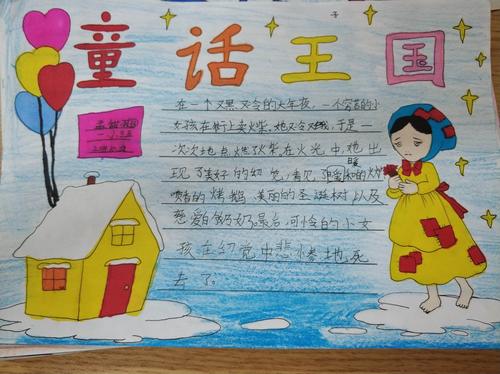 童话王国
在一个又黑又冷的大年夜,一个穷苦的小
女孩在街上卖火柴,她又冷又饿,于是一
次次地点燃了火柴,在火光中,她出
现了美好的幻觉,看见了温暖和的火炉
喷香的烤鹅,美丽的圣诞树以及
慈爱的奶奶。最后,可怜的小女
孩在幻觉中悲惨地死
去了。